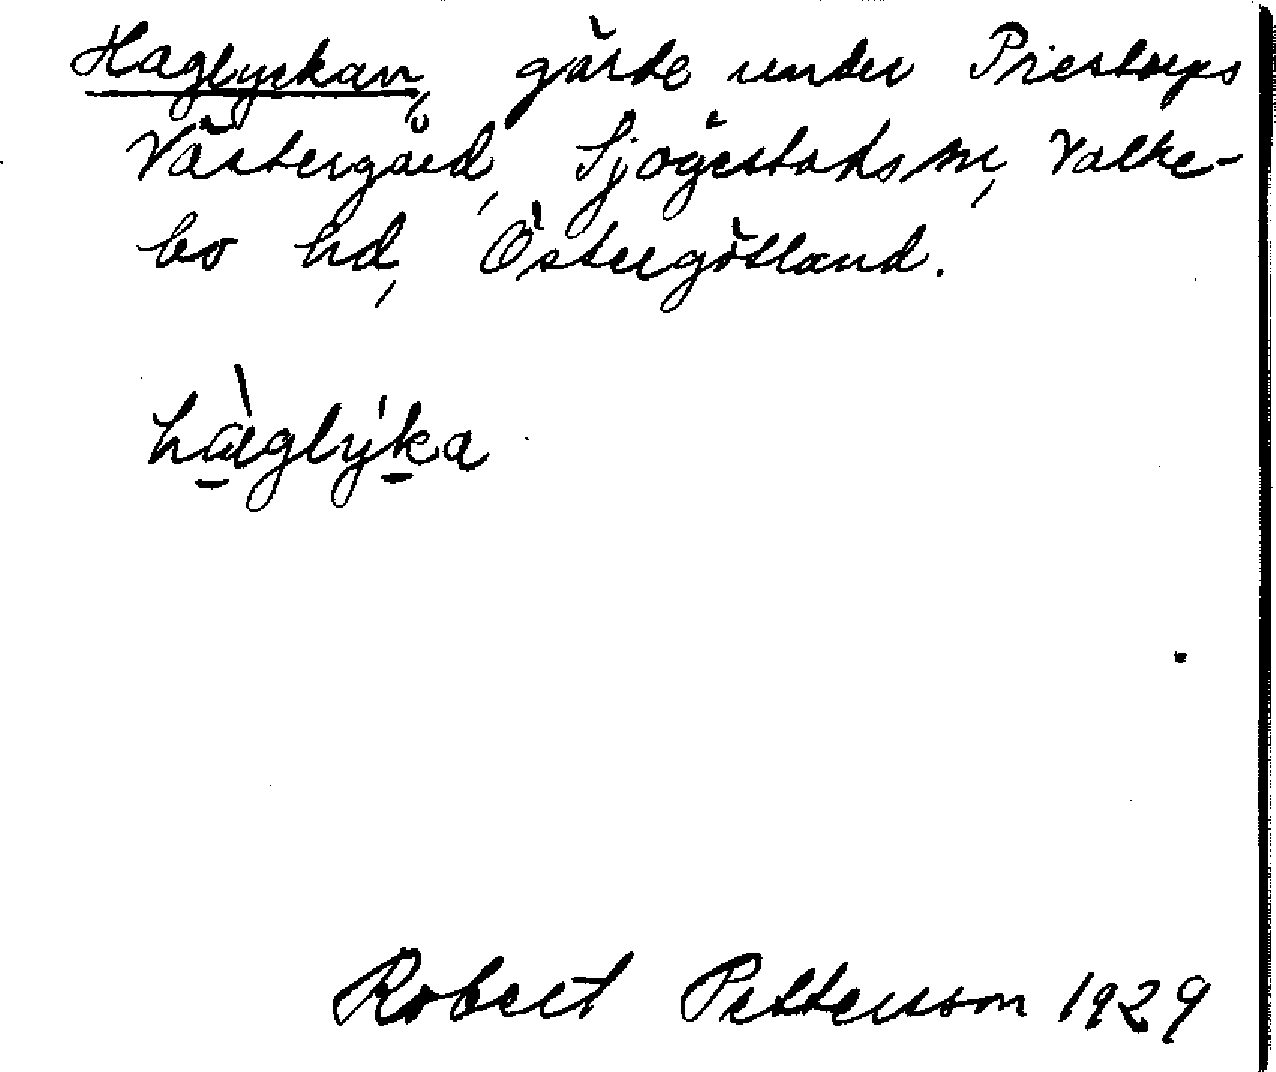 Haglyckan, gärde under Priestorps
Västergård, Sjögestads sn, Valke-
bo hd, Östergötland.
hàglýka
Robert Petterson 1929